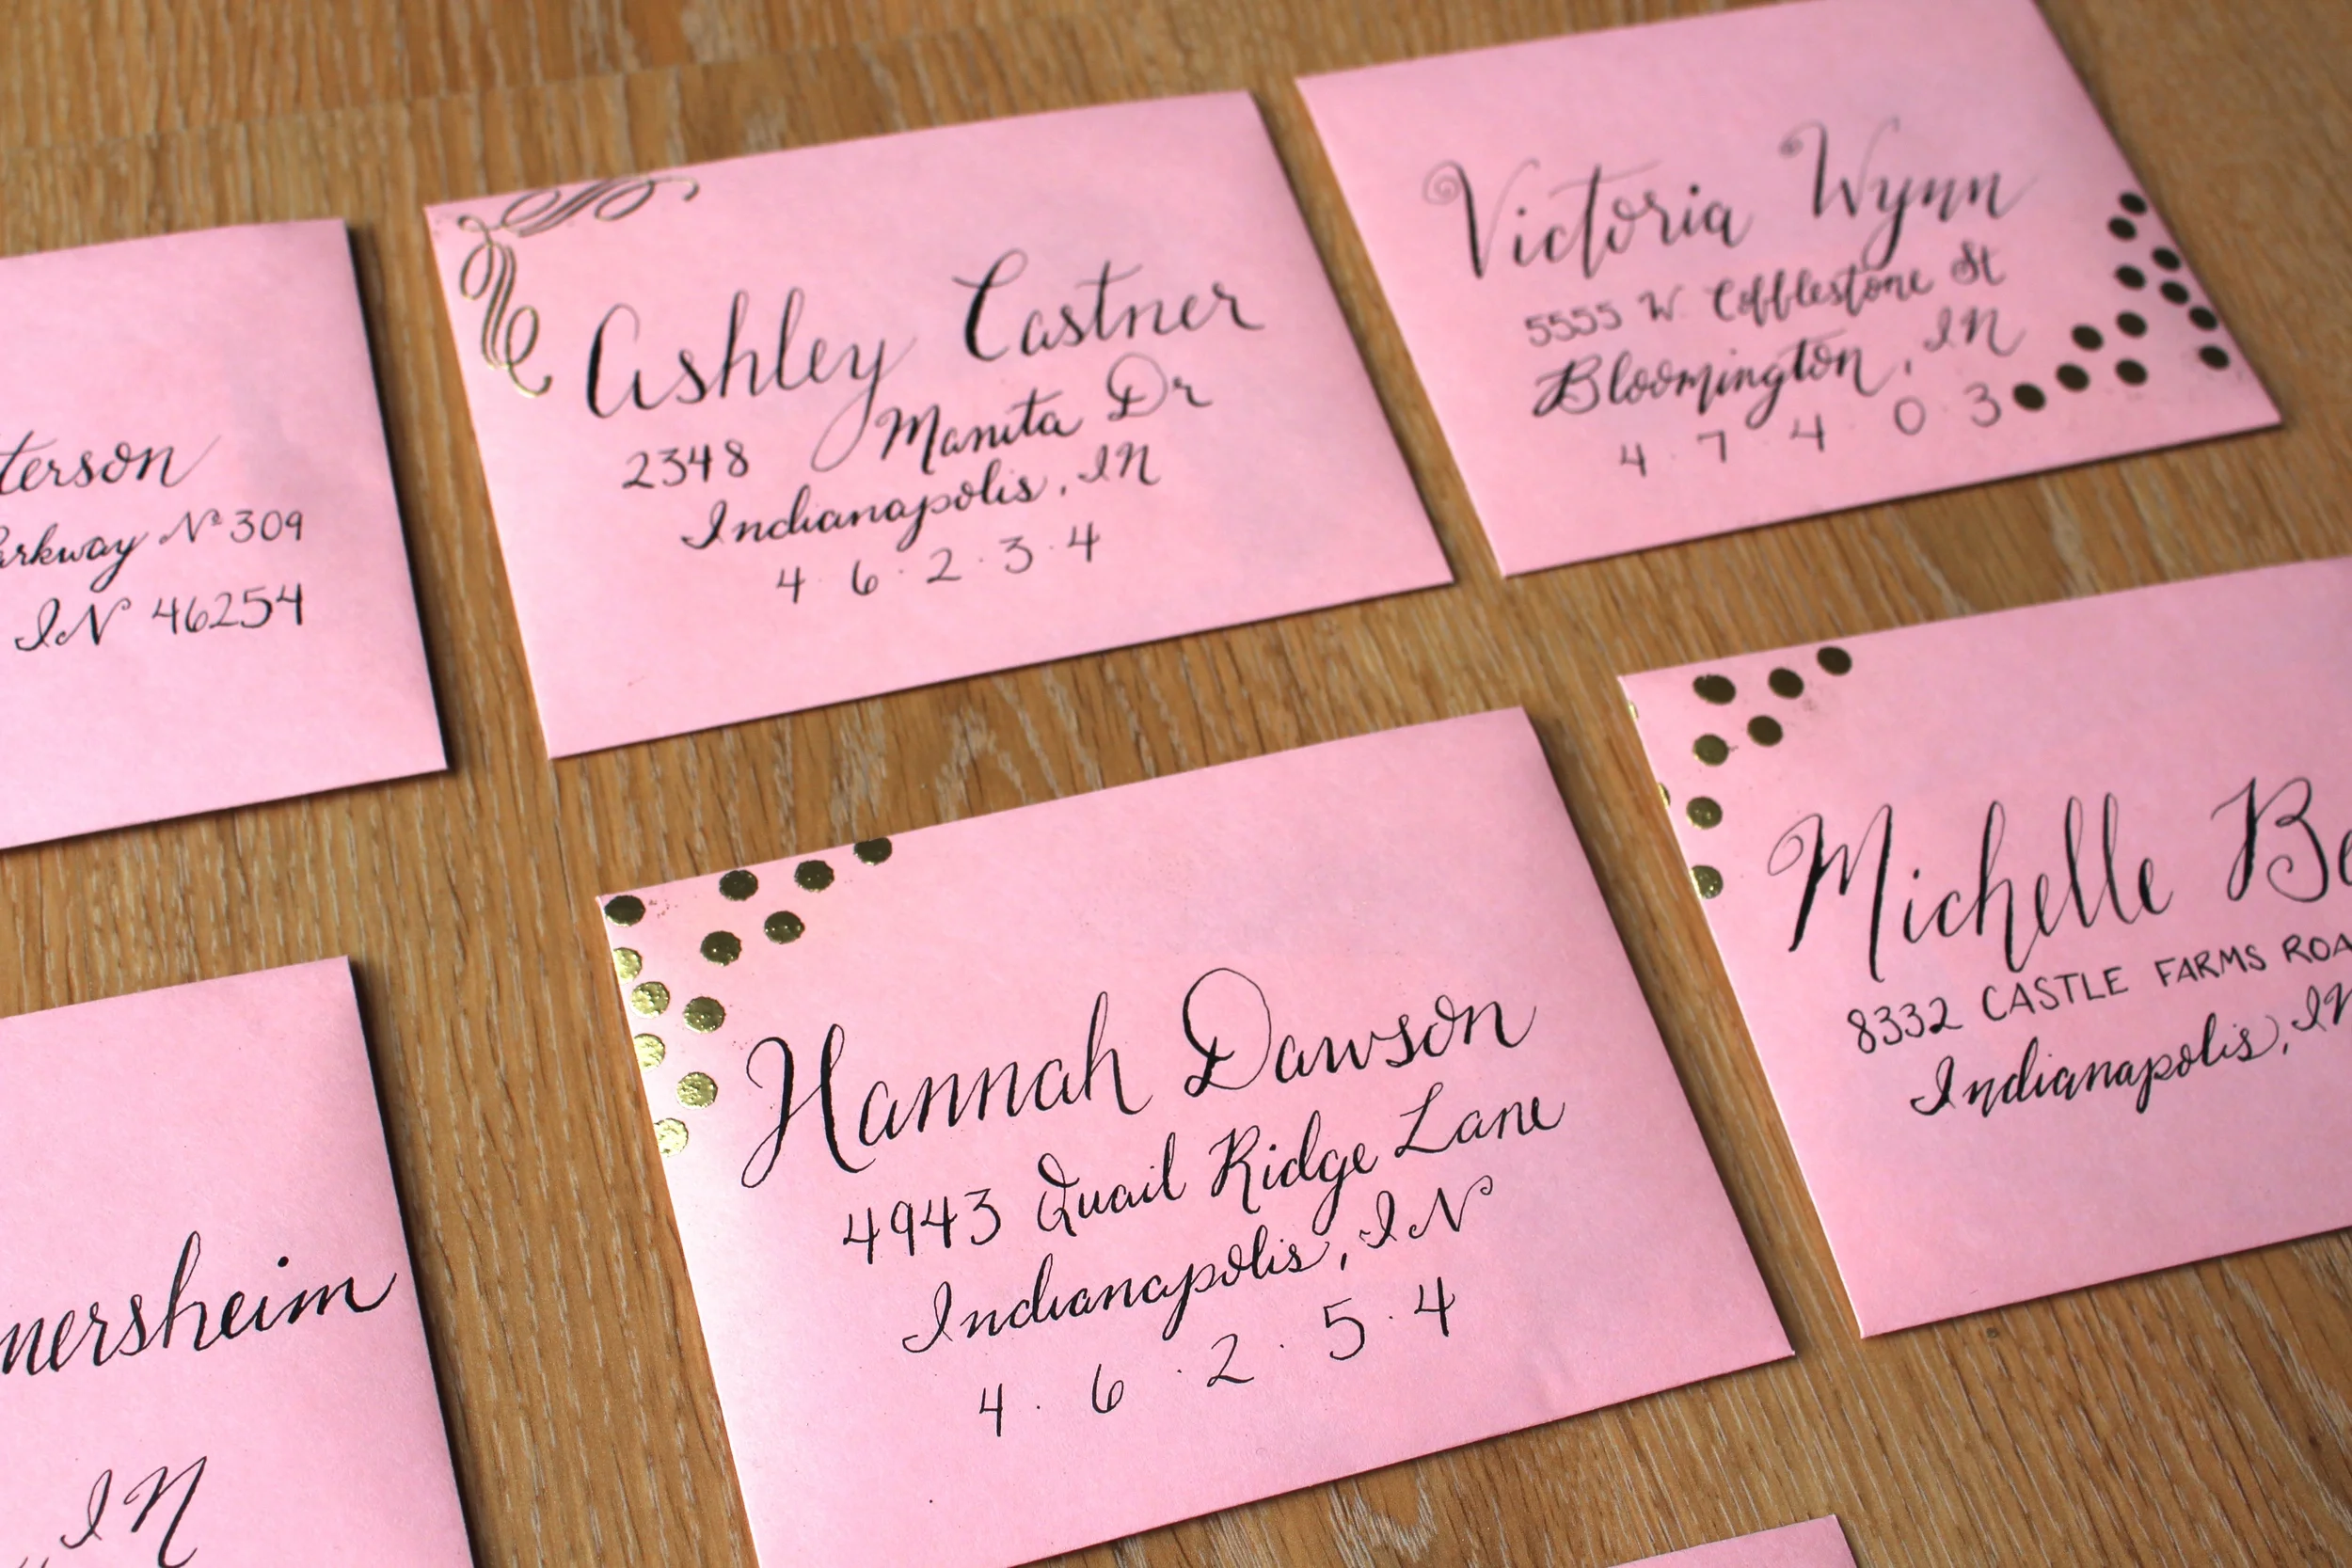 terson
arkway Nº 309
IN 46254
Ashley Castner
2348 Manita Dr
Indianapolis, IN
4·6·2·3·4
Victoria Wynn
5555 W. Cobblestone St
Bloomington, IN
4·7·4·0·3
nersheim
IN
Hannah Dawson
4943 Quail Ridge Lane
Indianapolis, IN
4·6·2·5·4
Michelle Be
8332 CASTLE FARMS ROA
Indianapolis, IN